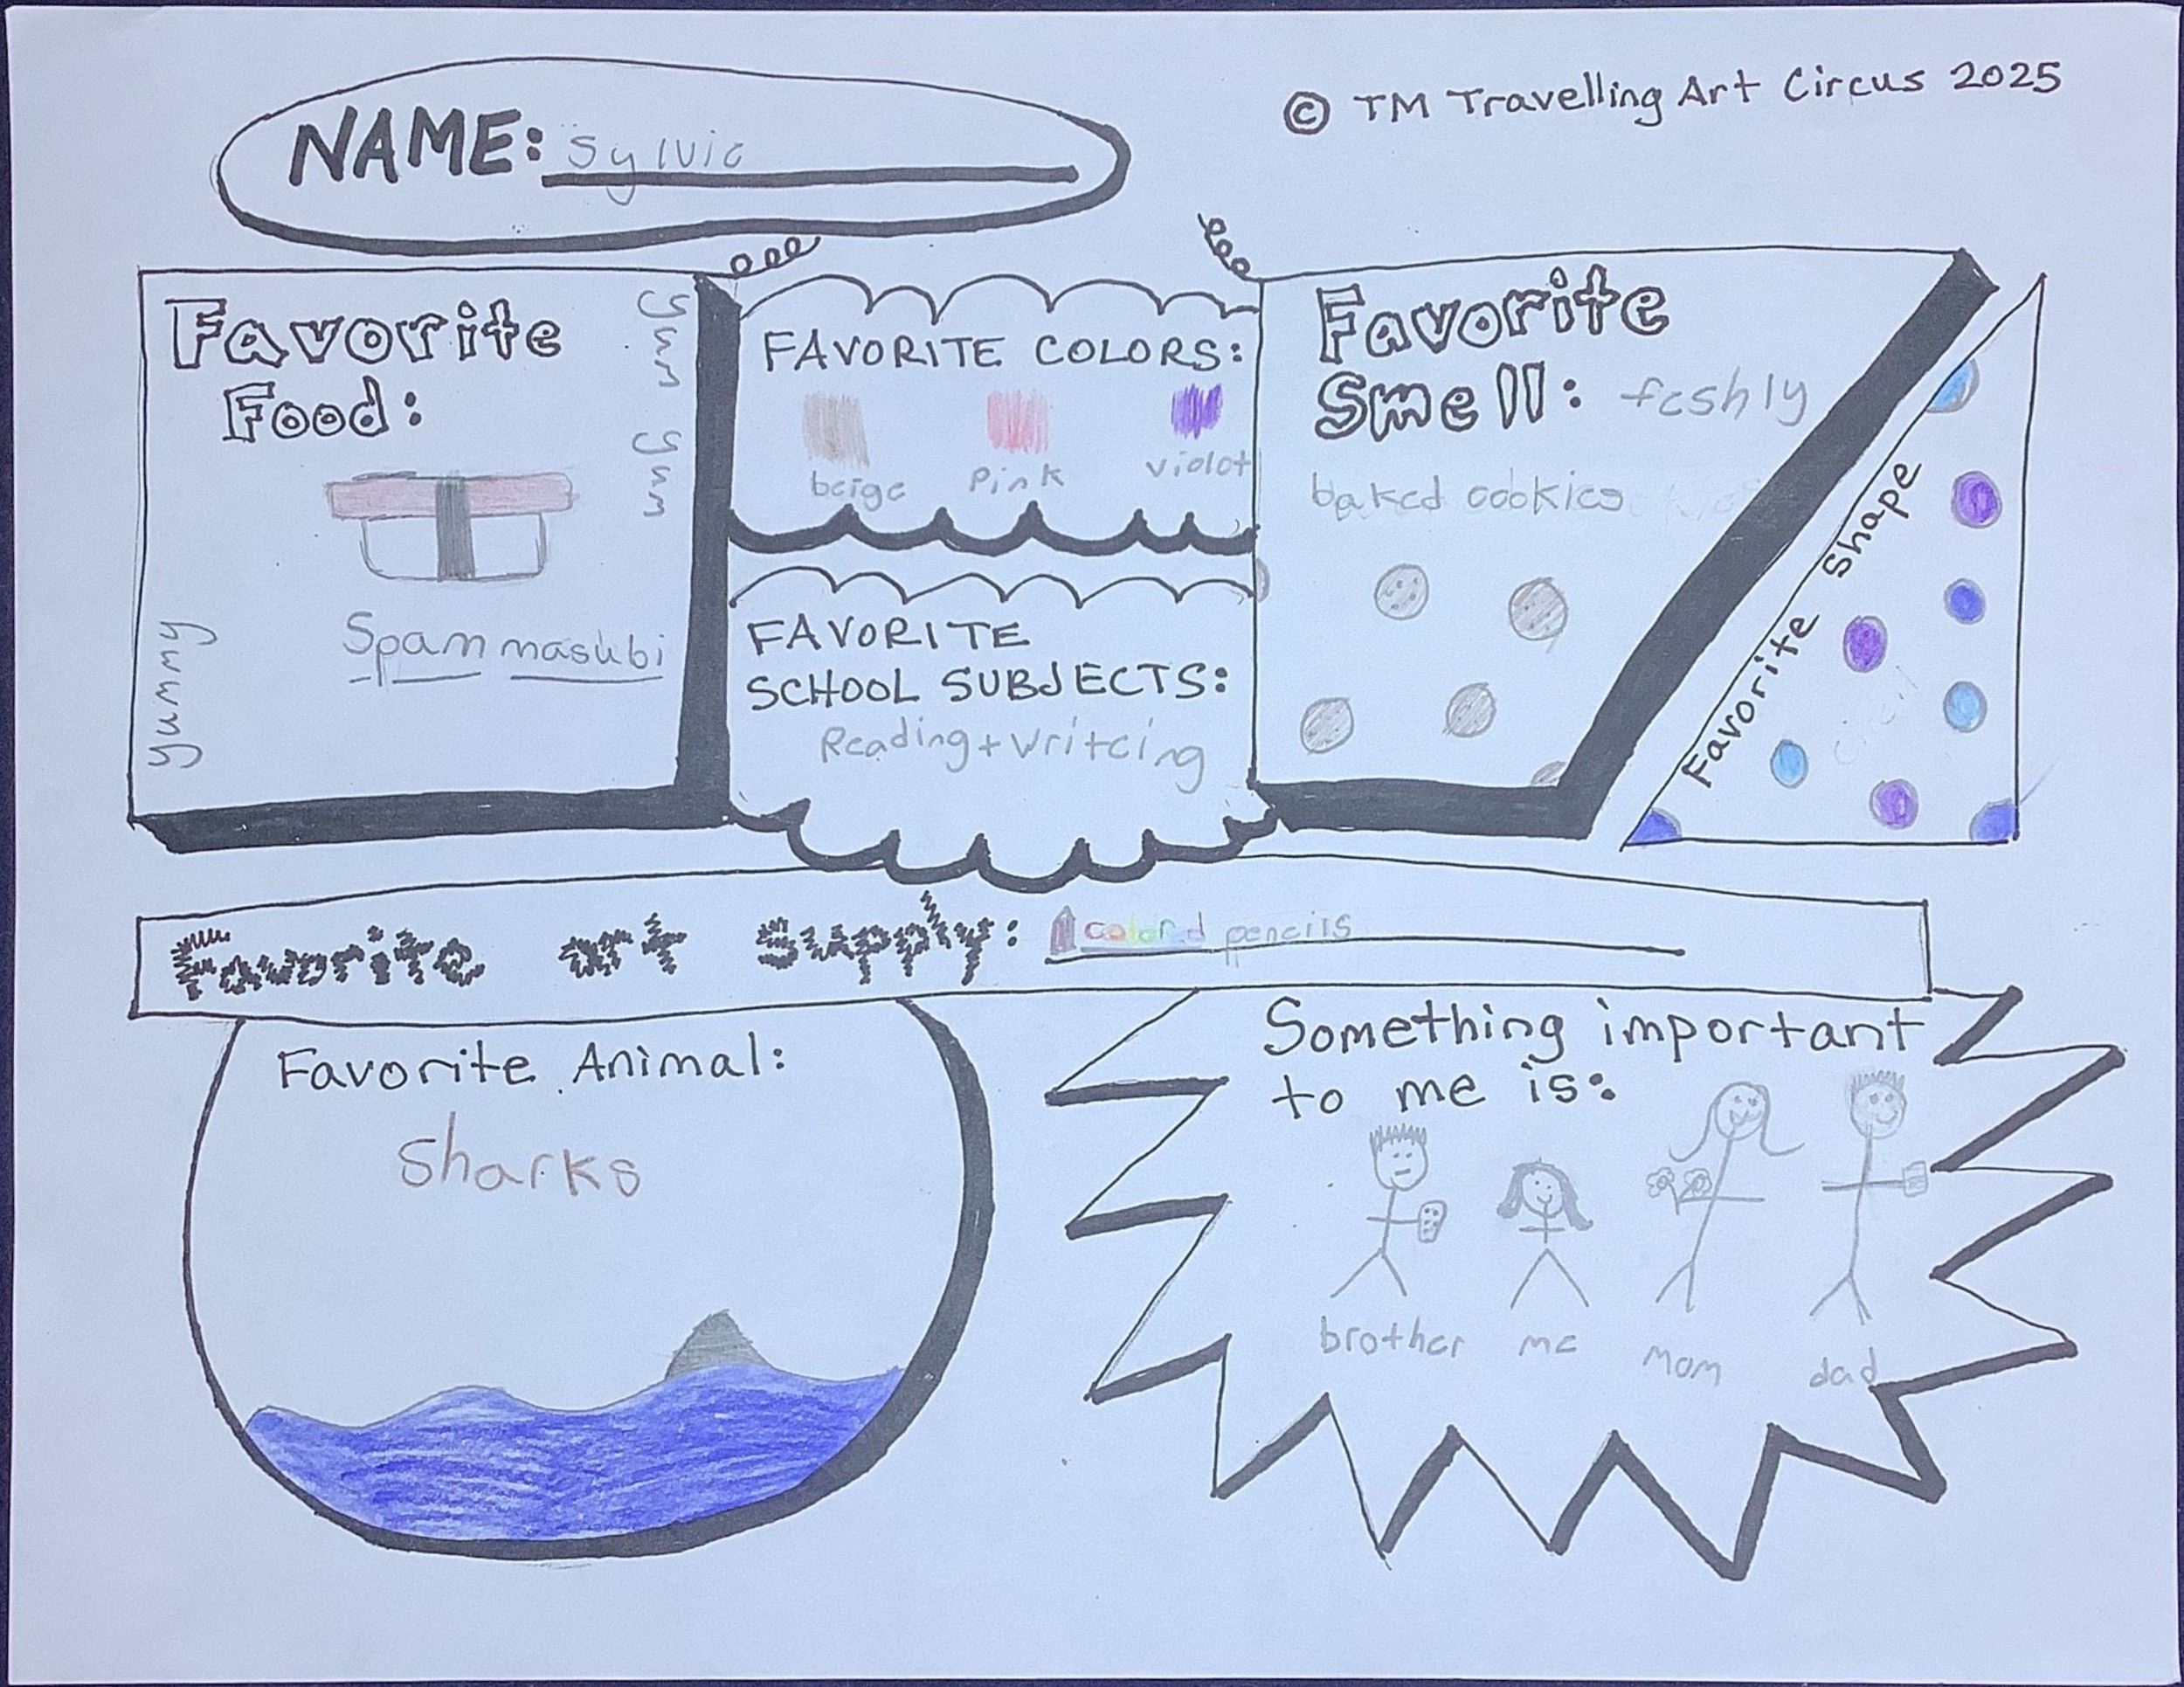 © TM Travelling Art Circus 2025
NAME: Sylvie
Favorite
Food:
yum yum
yummy
Spam masubi
FAVORITE COLORS:
beige pink violot
FAVORITE
SCHOOL SUBJECTS:
Reading + writeing
Favorite
Smell: feshly
baked cookies
Favorite Shape
circil
Favorite art supply: colord pencils
Favorite Animal:
sharks
Something important
to me is:
brother me mom dad